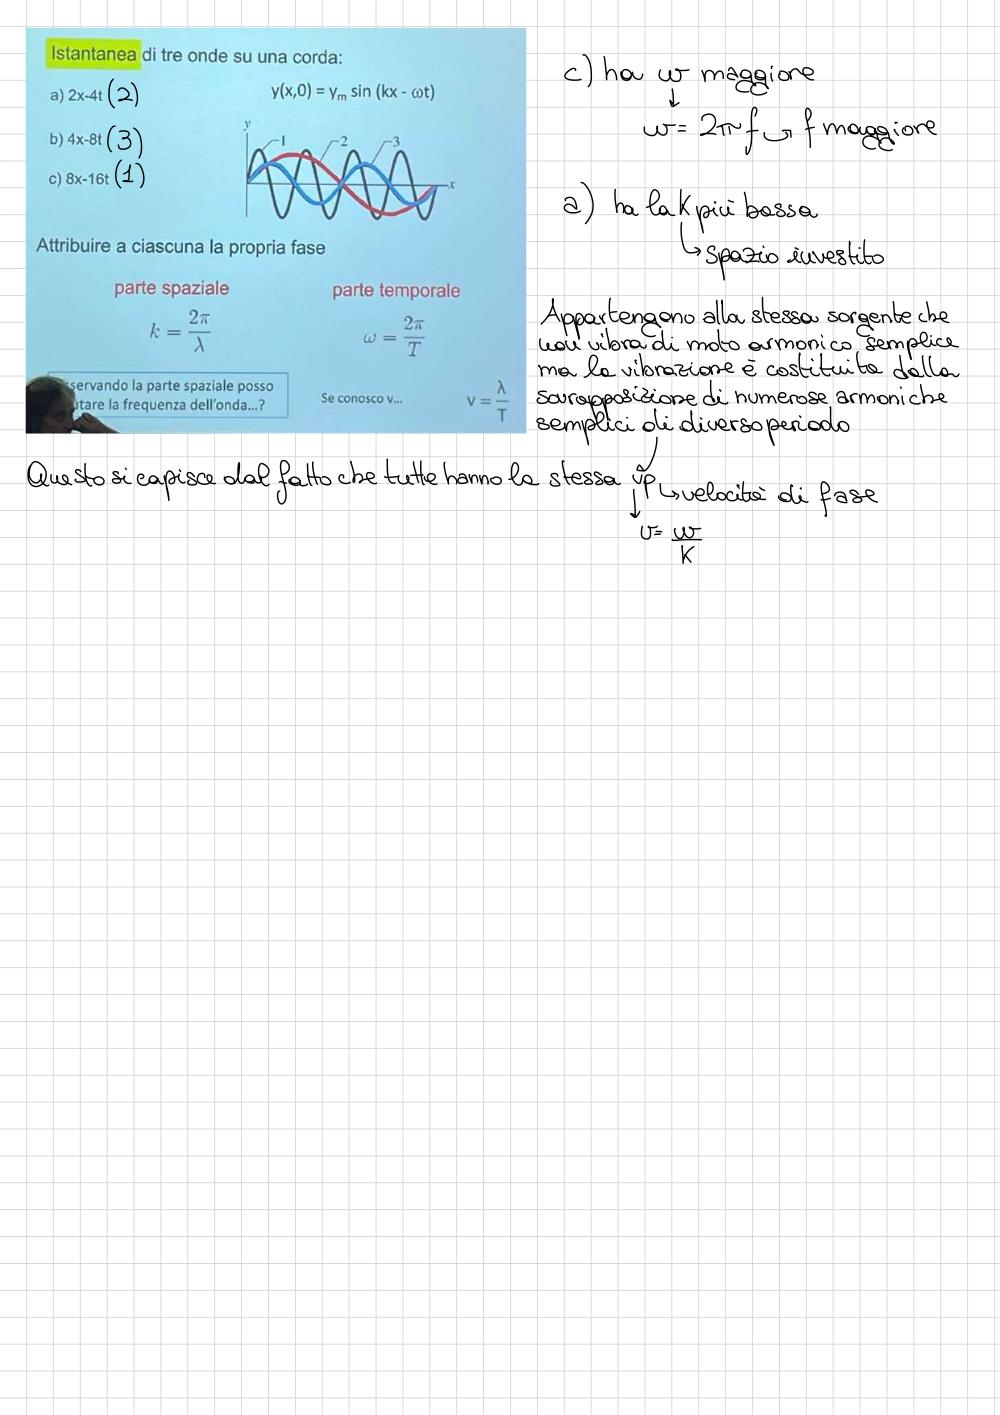 Istantanea di tre onde su una corda:
a) 2x-4t (2)
y(x,0) = yₘ sin (kx - ωt)
b) 4x-8t (3)
c) 8x-16t (1)
y
1
2
3
x
Attribuire a ciascuna la propria fase
parte spaziale
parte temporale
k = 2π/λ
ω = 2π/T
servando la parte spaziale posso
tare la frequenza dell'onda...?
Se conosco v...
v = λ/T
c) ha w maggiore
w = 2π f → f maggiore
a) ha la K più bassa
Spazio investito
Appartengono alla stessa sorgente che
non vibra di moto armonico semplice
ma la vibrazione è costituita dalla
sovrapposizione di numerose armoniche
semplici di diverso periodo
Questo si capisce dal fatto che tutte hanno la stessa vp → velocità di fase
v = w/K